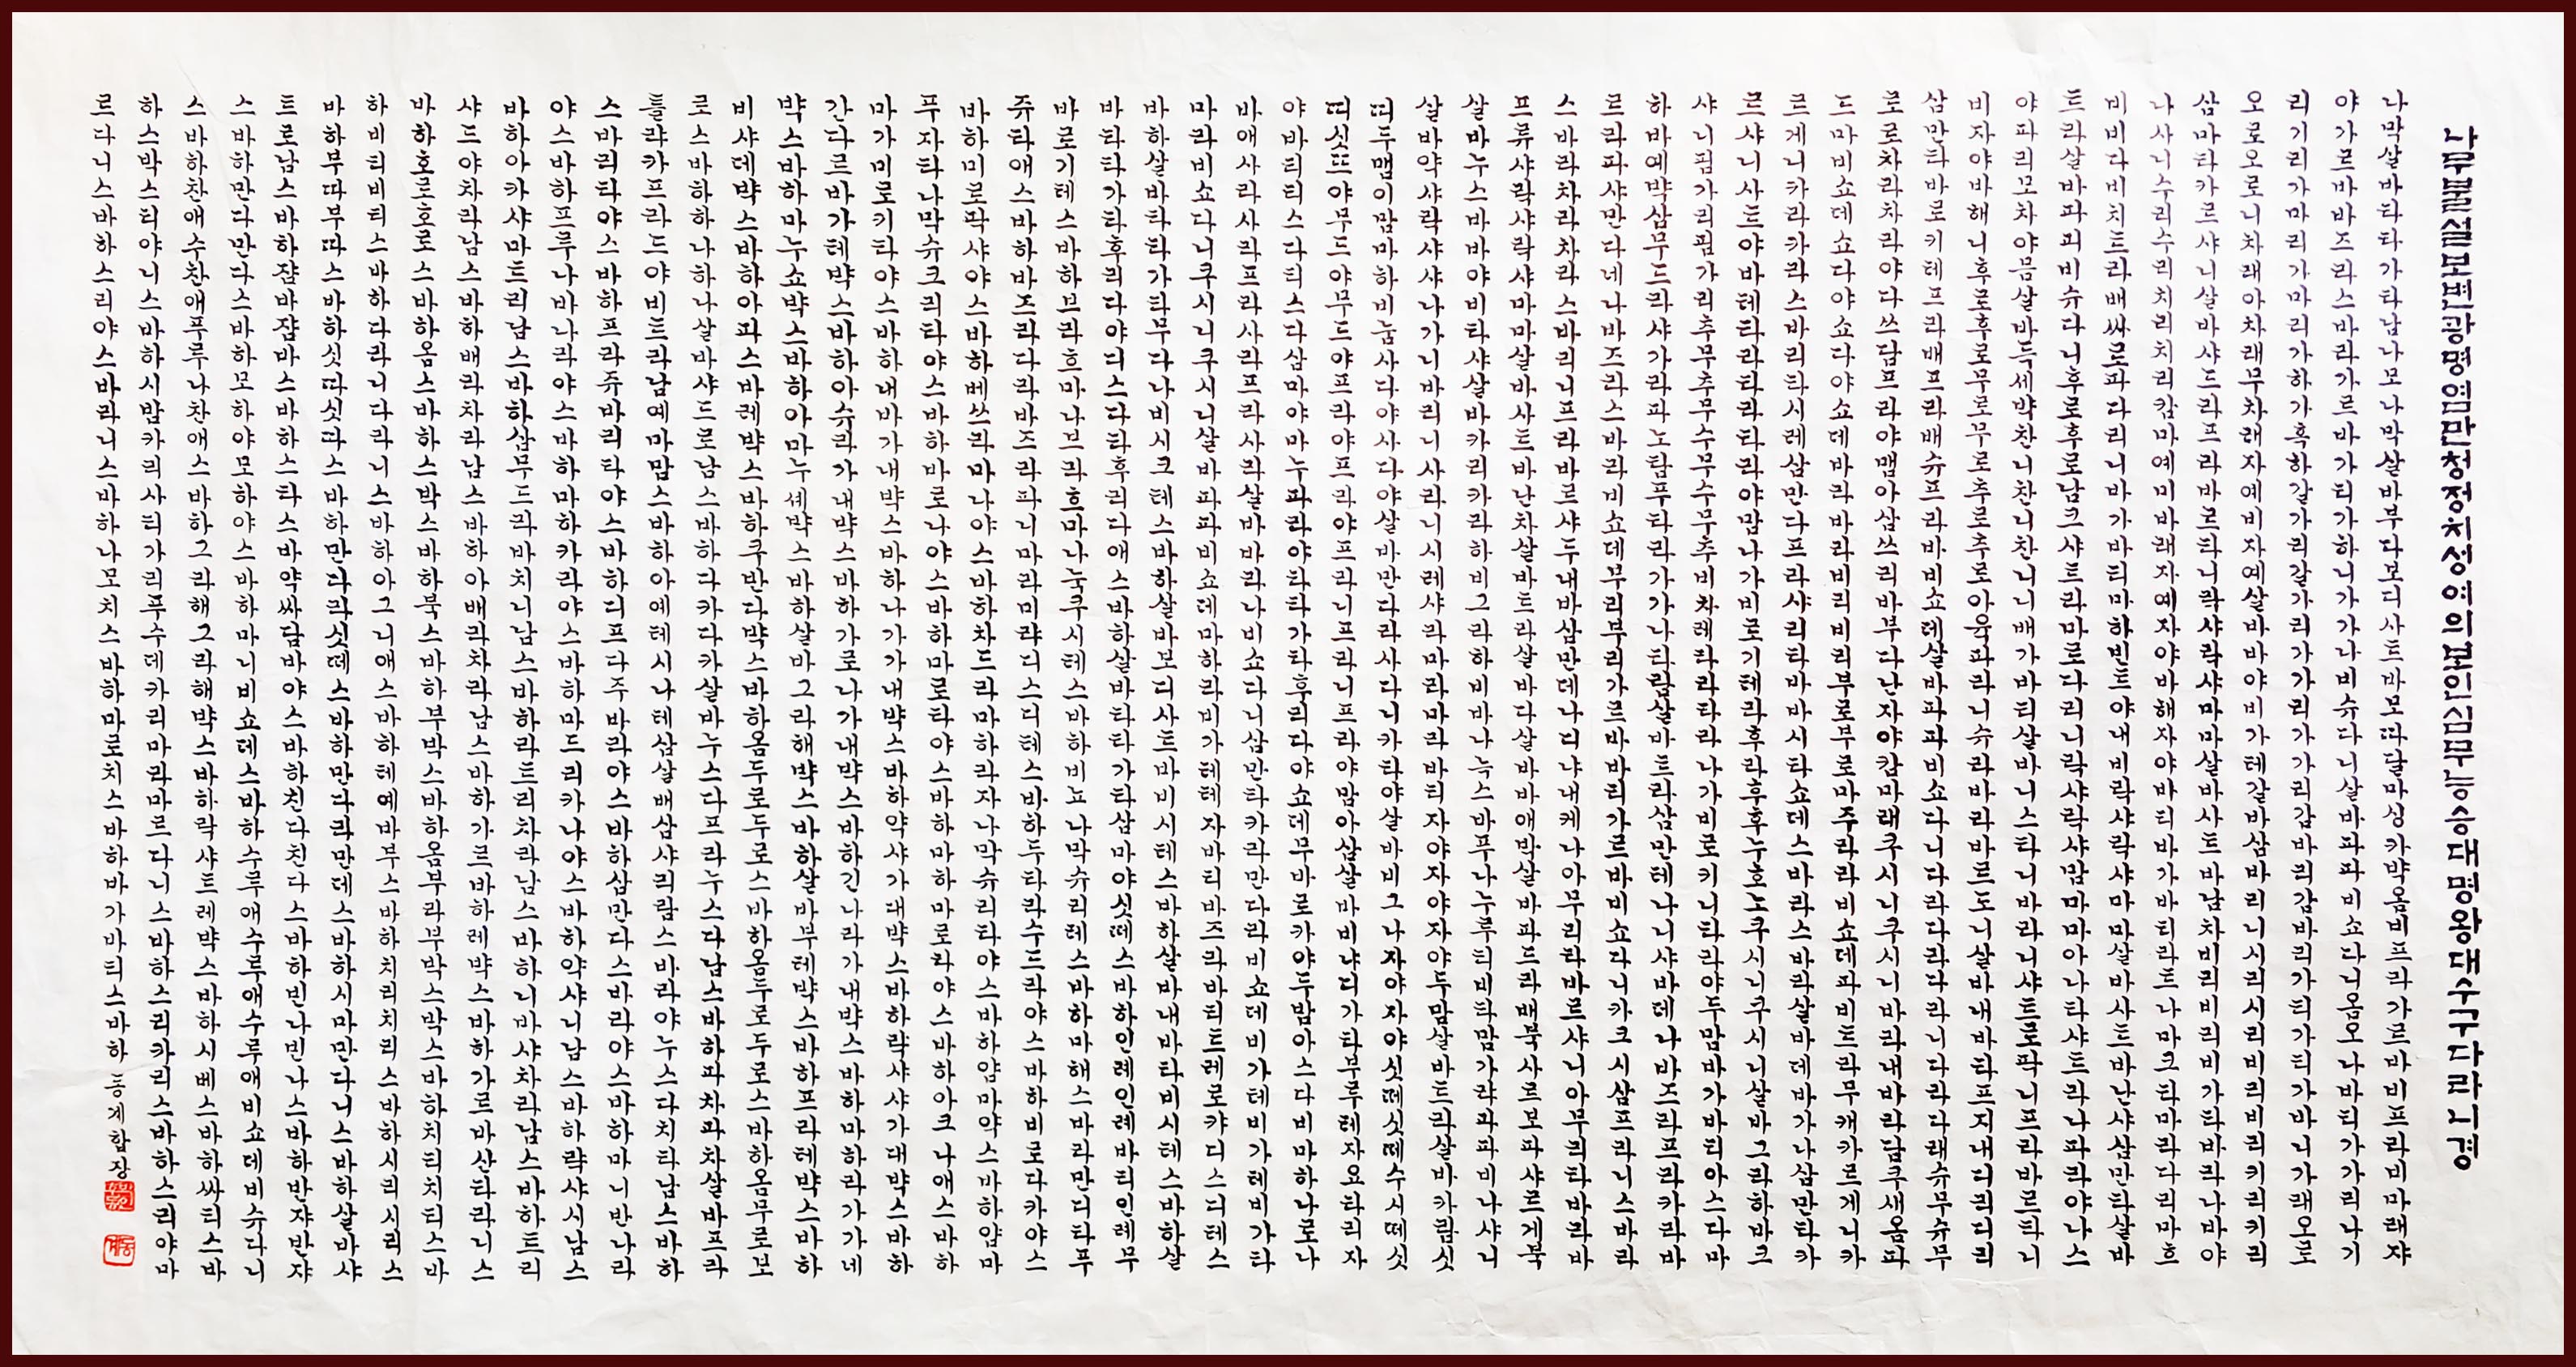 나무불설보변광명염만청정치성여의보인심무능승대명왕대수구다라니경
나막살바타타가타남나모나막살바부다보디사트바모따달마싱카뱍옴비프라가르바비프라비마래쟈
야가르바바즈라스바라가르바가티가하니가가나비슈다니살바파파비쇼다니옴오나바티가가리나기
리기리가마리가마리가하가혹하갈가리갈가리가가리가가리감바리감바리가티가티가바니가래오로
오로오로니차래아차래무차래자예비자예살바바야비가테갈바삼바리니시리시리비리비리키리키리
삼마타카르샤니살바샤드라프라바로타니락샤락샤마마살바사트바남차비리비리비가타바라나바야
나사니수리수리치리치리캄마예미바래자예자야바해자야바티바가바티라트나마크타마라다리마흐
비비다비치트라배싸로파다리니바가바티마하빈트야내비락샤락샤마마살바사트바난샤삼만타살바
트라살바파피비슈다니후로후로남크샤트라마로다리니락샤락샤맘마마아나타샤트라나파라야나스
야파리모차야믐살바두세뱍찬니찬니찬니니배가바티살바니스타니바라니샤트로팍니프라바르타니
비자야바해니후로후로무로무로추로추로아육파라니슈라바라바르도니살바내바타프지내디리디리
삼만타바로키테프라배프라배슈프라바비쇼데살바파파비쇼다니다라다라다라니다라다래슈무슈무
로로차라차라야다쓰담프라야맴아삼쓰리바부다난자야캄마래쿠시니쿠시니바라내바라담쿠새옴파
드마비쇼데쇼다야쇼다야쇼데바라바라비리비리부로부로마주라라비쇼데파비트라무캐카르게니카
르게니카라카라스바리타시레삼만다프라샤리타바바시타쇼데스바라스바라살바데바가나삼만타카
르샤니사트야바테타라타라타라야맘나가비로기테라후라후후누호노쿠시니쿠시니살바그라하바크
샤니핌가리핌가리추무추무수무수무추비차레타라타라나가비로키니타라야두맘바가바티아스다마
하바예뱍삼무드라샤가라파노탐푸타라가가나타람살바트라삼만테나니샤바데나바즈라프라카라바
르라파샤만다네나바즈라스바라비쇼데부리부리가르바바리가르바비쇼다니카크시삼프라니스바라
스바라차라차라스바리니프라바르샤두내바삼만데나디냐내케나아무리라바르샤니아무리타바라바
프류샤락샤락샤마마살바사트바난차살바트라살바다살바바애뱍살바파드라배북사르보파샤르게북
살바누스바바야비타샤살바카리카라하비그라하비바나늑스바푸나누루티비타맘가라파파비나샤니
살바약샤락샤샤나가니바리니사라니시레샤라마라마라바티자야자야자야두맘살바트라살바카람싯
띠두맴이맘마하비눔사다야사다야살바만다라사다니카타야살바비그나자야자야싯떼싯떼수시떼싯
띠싯뜨야무드야무드야프라야프라야프라니프라니프라야맘아삼살바비냐디가타부루테자요타리자
야바티티스다티스다삼마야마누파라야타타가타후리다야쇼데무바로카야두밤아스다비마하나로나
바애사라사라프라사라프라사라살바바라나비쇼다니삼만타카라만다라비쇼데비가테비가테비가타
마라비쇼다니쿠시니쿠시니살바파파비쇼데마하라비가테테자바티바즈라바티트레로캬디스디테스
바하살바타타가타무다나비시크테스바하살바보디사트바비시테스바하살바내바타비시테스바하살
바타타가타후리다야디스다타후리다애스바하살바타타가타삼마야싯떼스바하인례인례바티인례무
바로기테스바하브라흐마나브라흐마나눅쿠시테스바하비뇨나막슈리레스바하마해스바라만디타푸
쥬타애스바하바즈라다라바즈라파니마라미랴디스디테스바하두타라수드라야스바하비로다카야스
바하미로팍샤야스바하베쓰라마나야스바하차드라마하라자나막슈리타야스바하얌마약스바하얌마
푸자타나막슈크리타야스바하바로나야스바하마로타야스바하마하마로라야스바하아크나애스바하
마가미로키타야스바하내바가내뱍스바하나가가내뱍스바하약샤가대뱍스바하락샤샤가대뱍스바하
간다르바가테뱍스바하아슈라가내뱍스바하가로나가내뱍스바하긴나라가내뱍스바하마하라가가네
뱍스바하마누쇼뱍스바하아마누셰뱍스바하살바그라해뱍스바하살바부테뱍스바하프라테뱍스바하
비샤데뱍스바하아파스바레뱍스바하쿠반다뱍스바하옴두로두로스바하옴두로두로스바하옴무로보
로스바하하나하나살바샤드로남스바하다카다카살바누스다프라누스다남스바하파차파차살바프라
틀랴카프라드야비트라남예마맘스바하아예테시나테삼살배삼샤리람스바라야누스다치타남스바하
스바리타야스바하프라쥬바리타야스바하디프다주바라야스바하삼만다스바라야스바하마니반나라
야스바하프루나바나라야스바하마하카라야스바하마드리카나야스바하약샤니남스바하락샤시남스
바하아카샤마트리남스바하삼무드라바치니남스바하라트리차라남스바하니바샤차라남스바하트리
샤드야차라남스바하배라차라남스바하아배라차라남스바하가르바하레뱍스바하가르바산타라니스
바하호로호로스바하옴스바하스박스바하북스바하부박스바하옴부라부박스박스바하치티치티스바
하비티비티스바하다라니다라니스바하아그니애스바하테예바부스바하치리치리스바하시리시리스
바하부따부따스바하싯다싯다스바하만다라싯떼스바하만다라만데스바하시마만다니스바하살바샤
트로남스바하쟘바쟘바스바하스타스바약싸담바야스바하친다친다스바하빈나빈나스바하반쟈반쟈
스바하만다만다스바하모하야모하야스바하마니비쇼데스바하수루애수루애수루애비쇼데비슈다니
스바하찬애수찬애푸루나찬애스바하그라해그라해뱍스바하락샤트레뱍스바하시베스바하싸티스바
하스박스티야니스바하시밤카리사티가리푸수데카리마라마르다니스바하스리카리스바하스리야마
르다니스바하스리야스바라니스바하나모치스바하마로치스바하바가바티스바하 동계합장